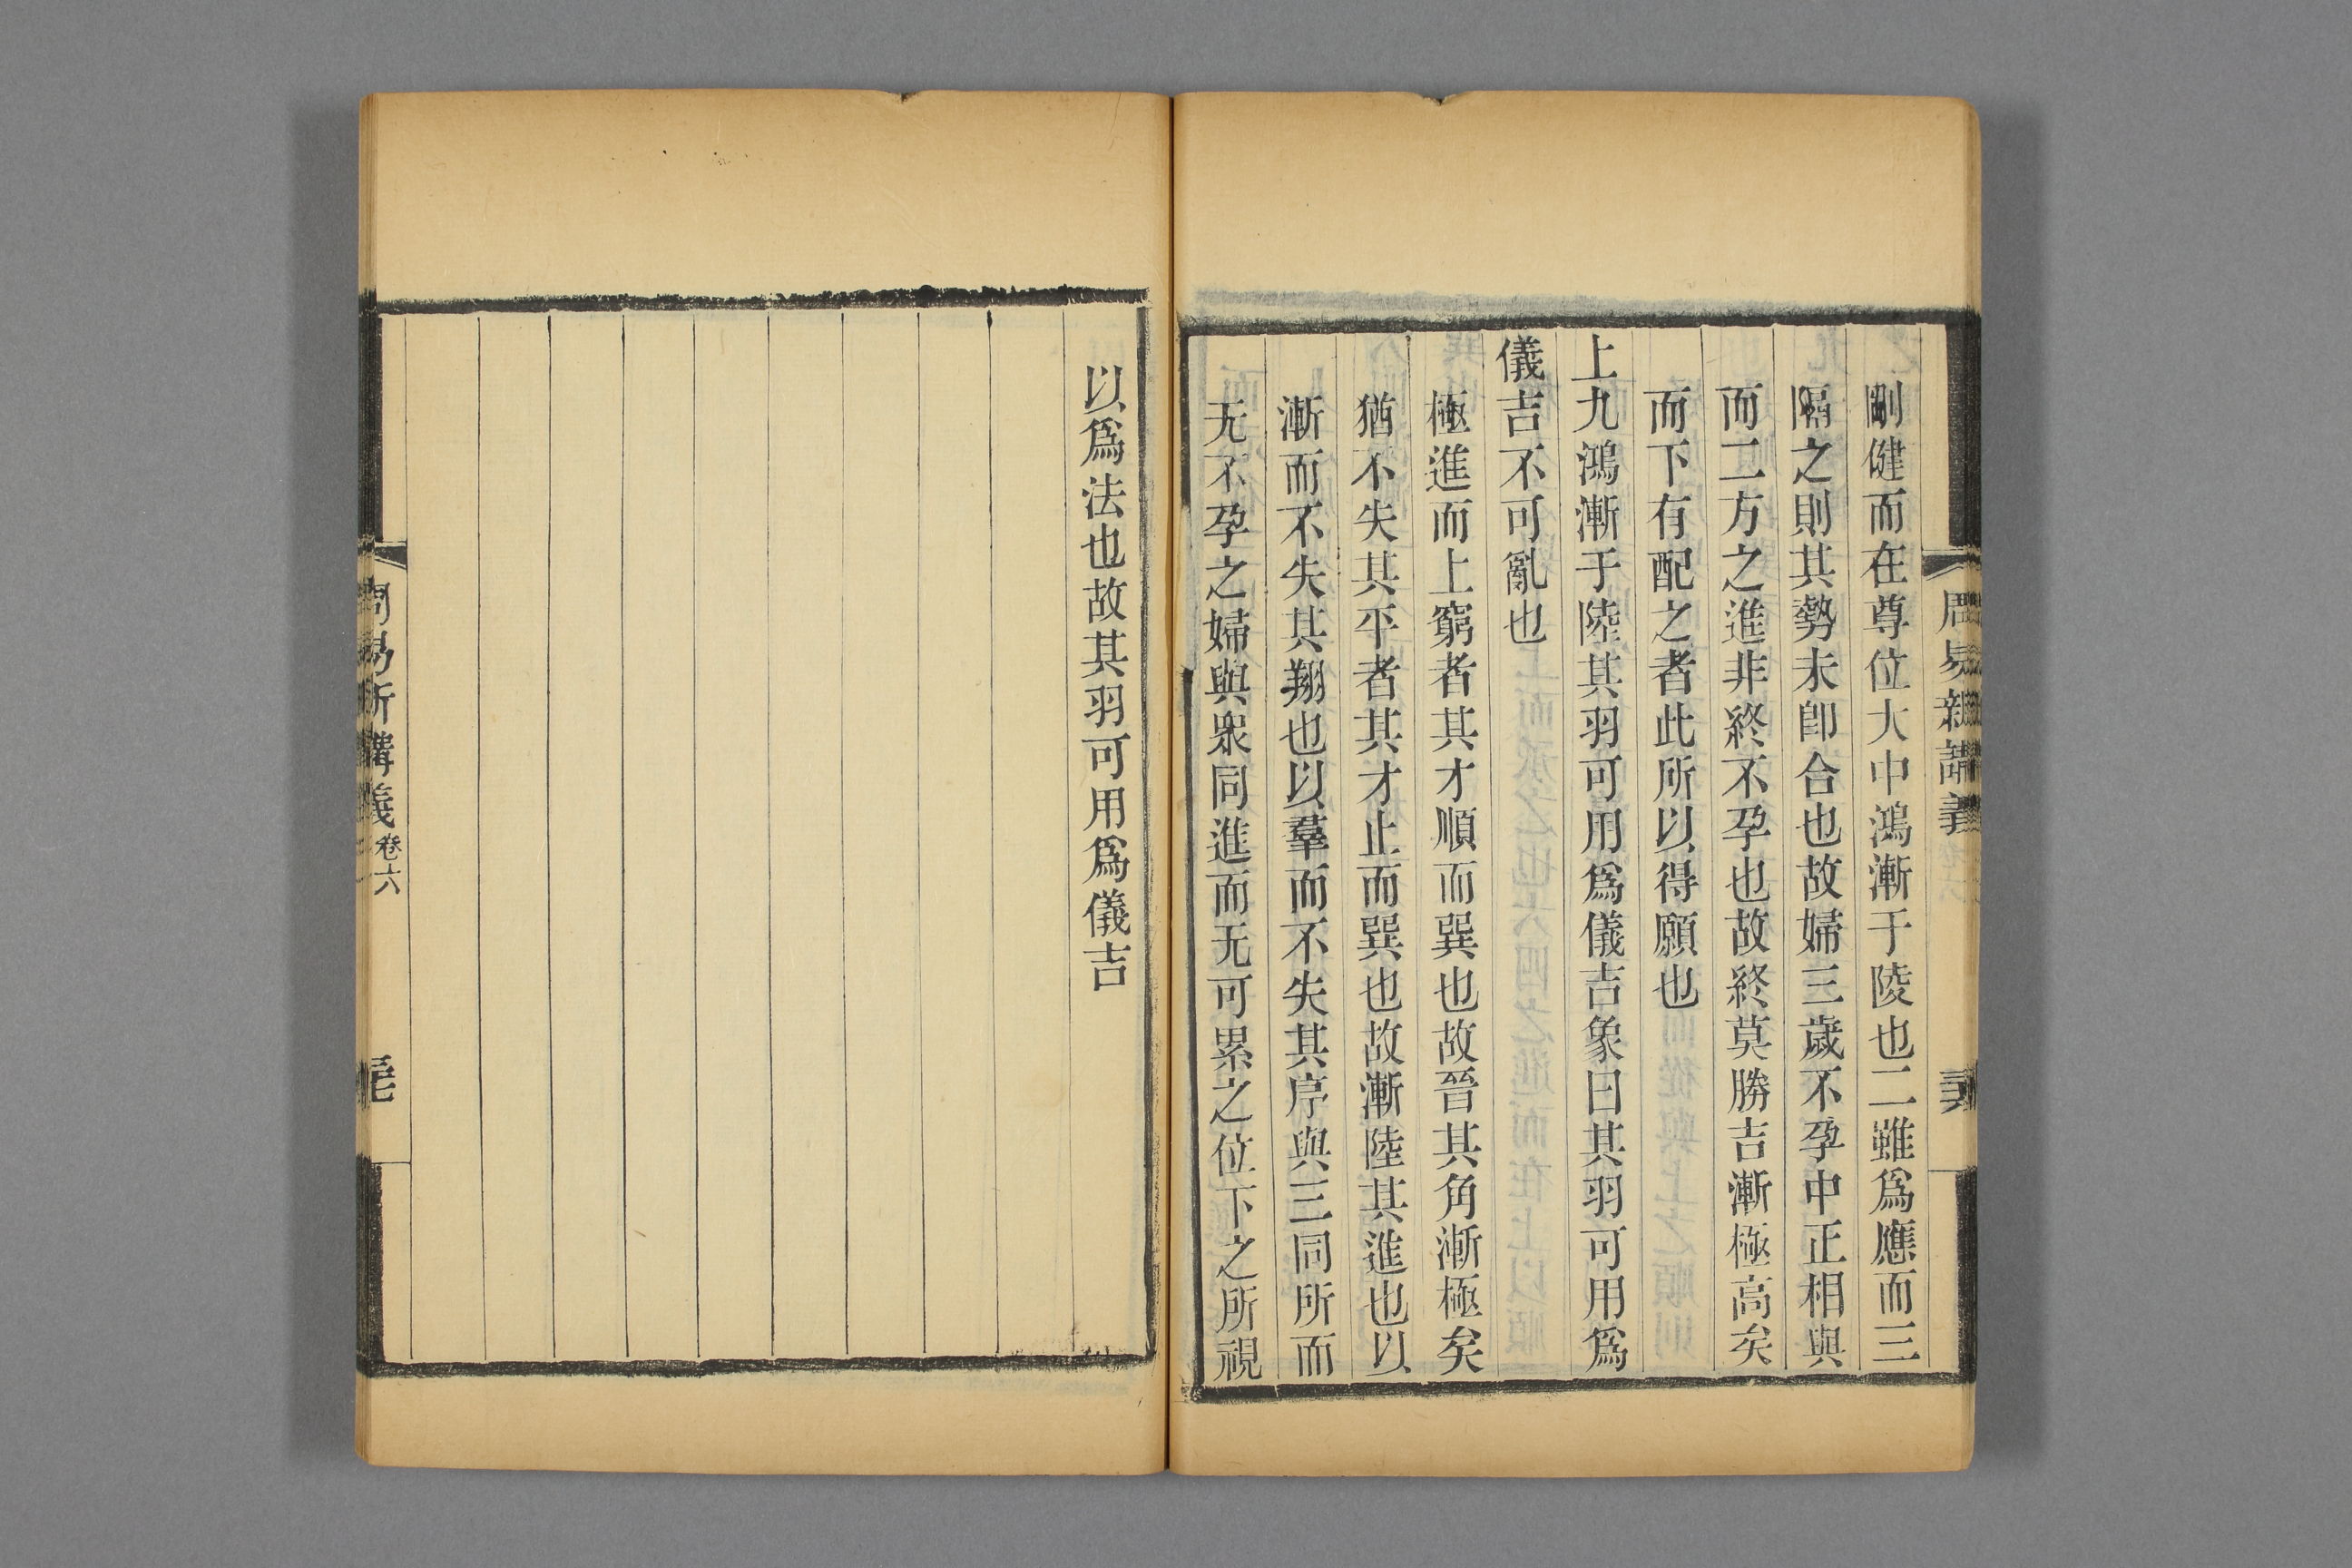 剛健而在尊位大中鴻漸于陵也二雖爲應而三
隔之則其勢未卽合也故婦三歲不孕中正相與
而二方之進非終不孕也故終莫勝吉漸極高矣
而下有配之者此所以得願也
上九鴻漸于陸其羽可用爲儀吉象曰其羽可用爲
儀吉不可亂也
極進而上窮者其才順而巽也故晉其角漸極矣
猶不失其平者其才止而巽也故漸陸其進也以
漸而不失其翔也以羣而不失其序與三同所而
无不孕之婦與衆同進而无可累之位下之所視
以爲法也故其羽可用爲儀吉
周易新講義
卷六